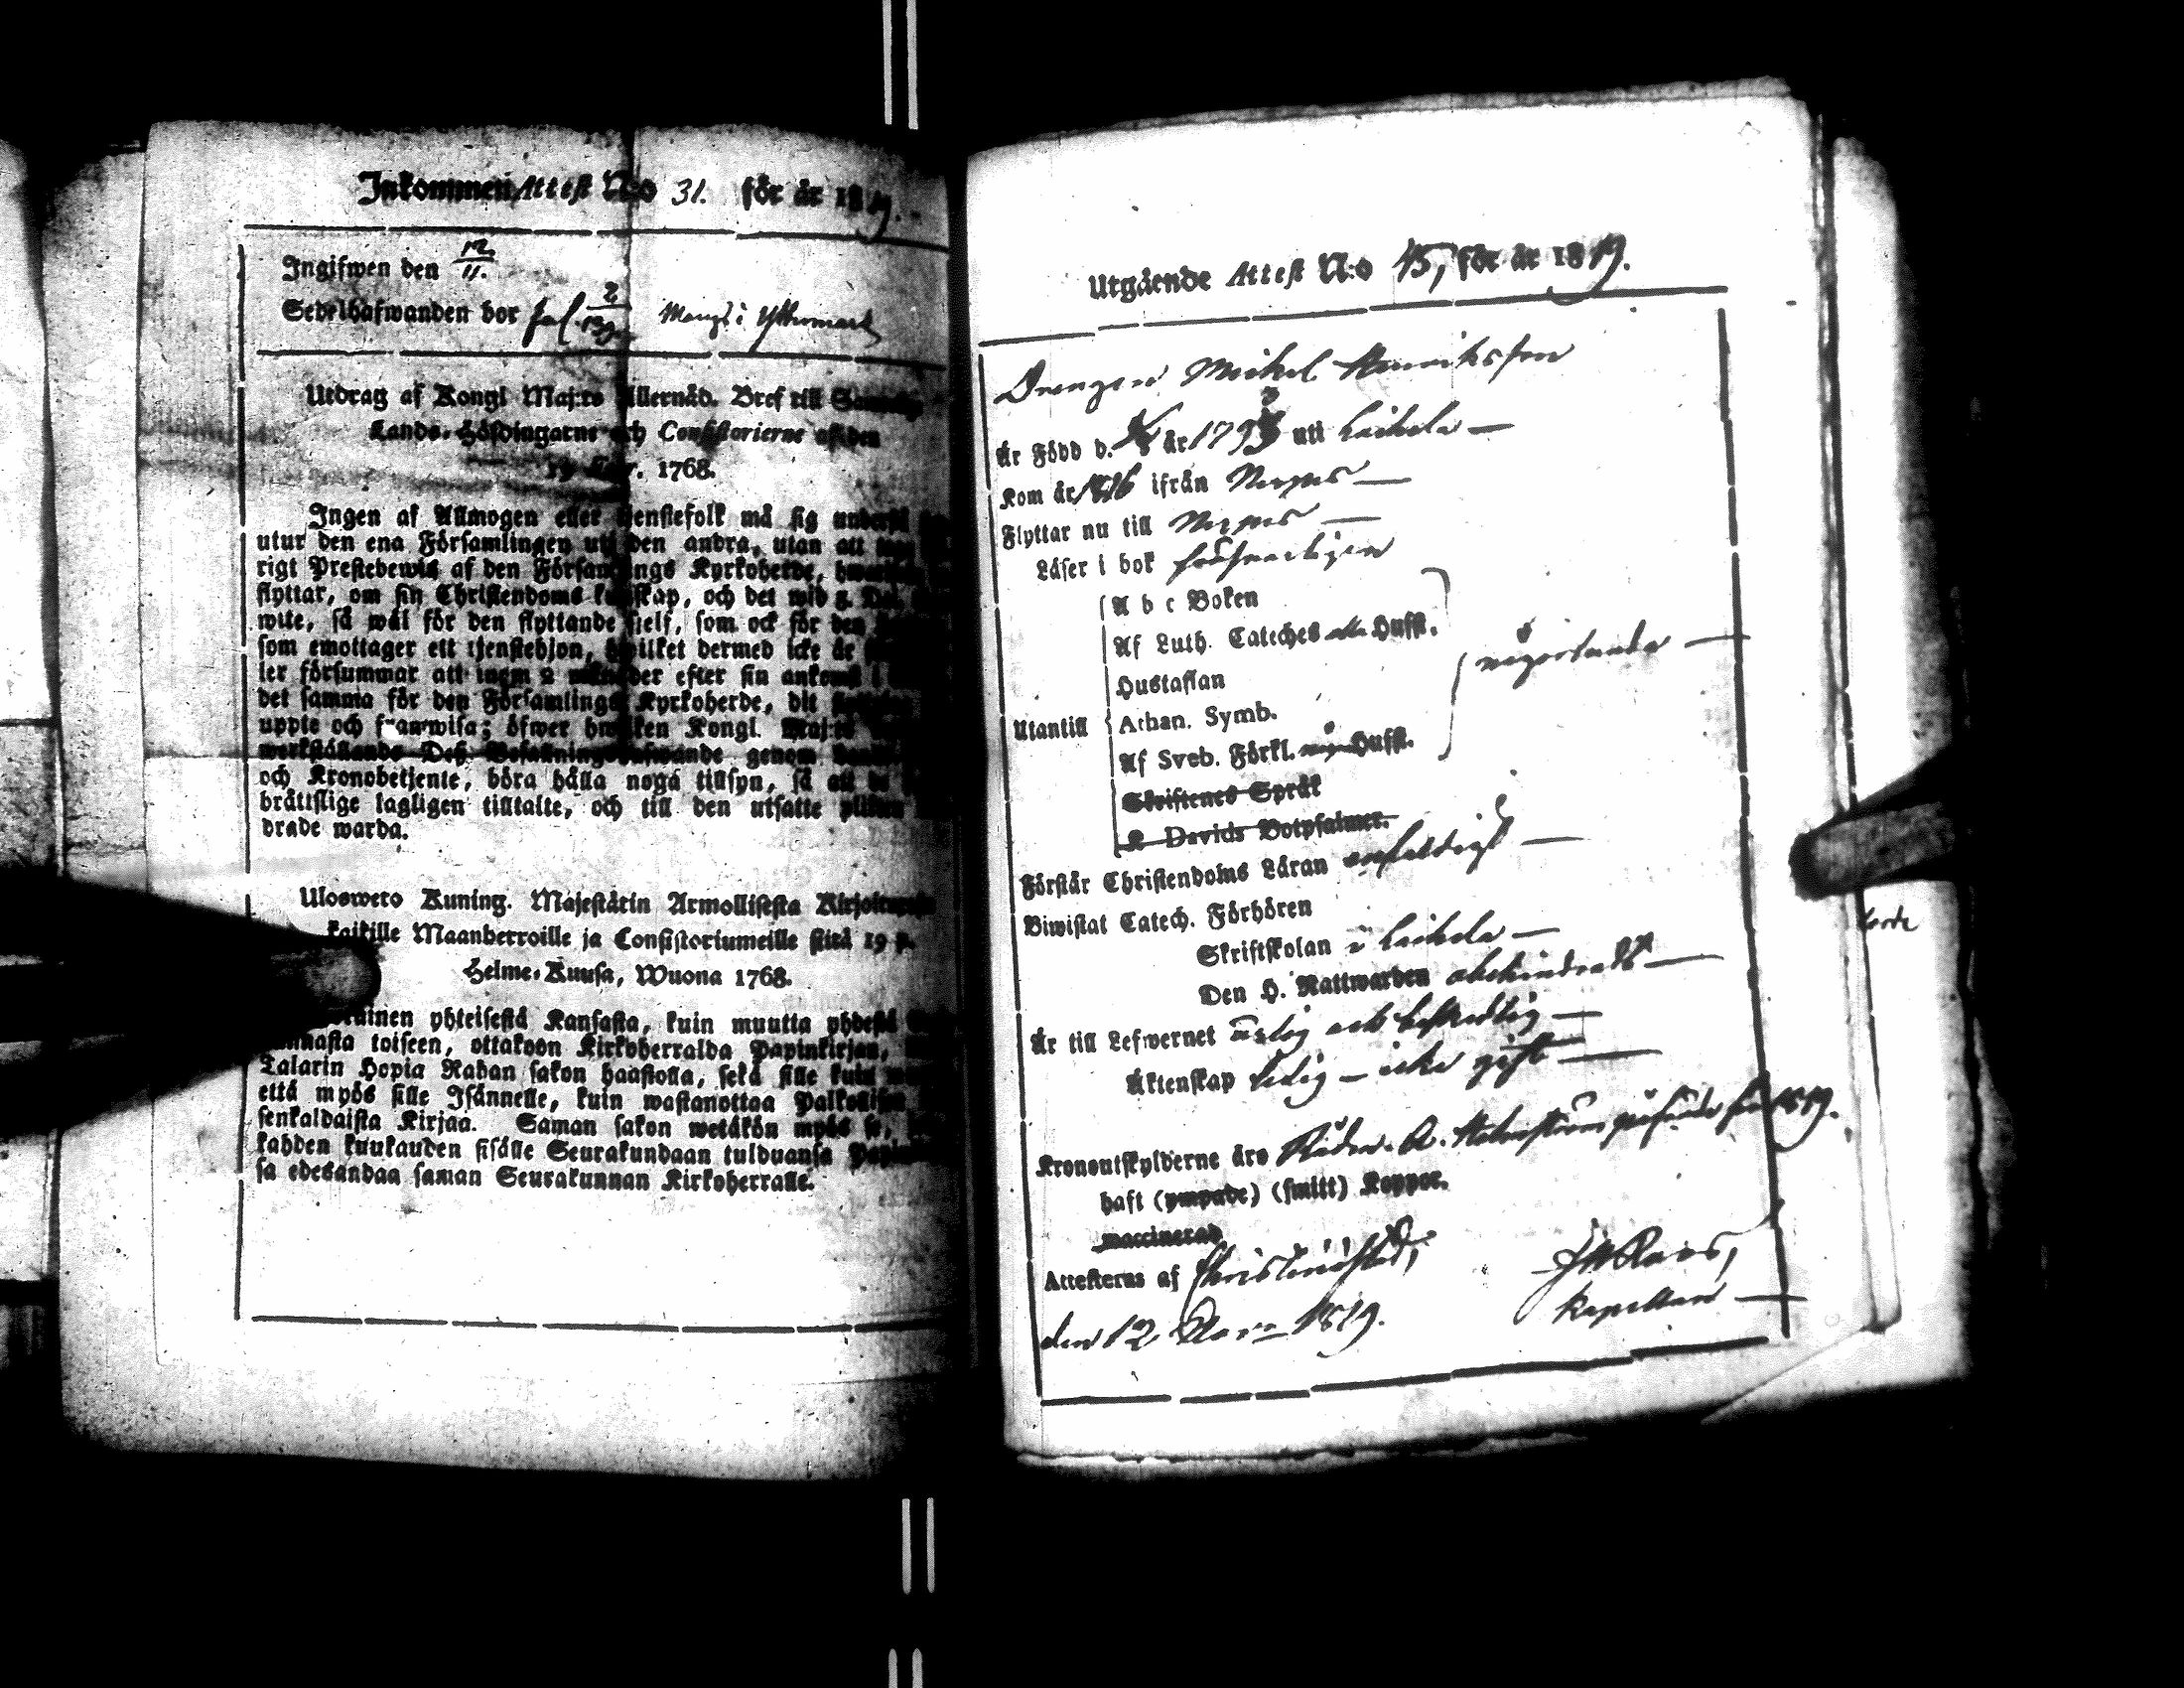 Inkommen Attest N:o 31. för år 1819.
Ingifwen den 12/11.
Sedelhafwanden bor fol. 2/139. Mangs i Yttermark
Utdrag af Kongl Maj:ts Allernåd. Bref till
Lands-Höfdingarne och Consistorierne af den
19 1768.
Ingen af Allmogen eller tjenstefolk må sig
utur den ena Församlingen uti den andra, utan att
rigt Prestebewis af den Församlings Kyrkoherde,
flyttar, om sin Christendoms kunskap, och det wid
wite, så wäl för den flyttande sielf, som ock för den
som emottager ett tjenstehjon, hwilket dermed icke är
ler försummar att inom 2 månader efter sin ankomst
det samma för den Församlings Kyrkoherde, dit
uppte och framwisa; öfwer hwilken Kongl. Maj:ts
werkställande Deß Befallningshafwande genom
och Kronobetjente, böra hålla noga tillsyn, så att
bråttslige lagligen tilltalte, och till den utsatte
drade warda.
Uloswero Kuning. Majestätin Armollisesta
kaikille Maanherroille ja Consistoriumeille siitä 19 p.
Helme-Kuusa, Wuona 1768.
yhteisestä Kansasta, kuin muutta yhdestä
toiseen, ottakoon Kirkoherralda Papinkirjan,
Talarin Hopia Rahan sakon haastolla, sekä sille kuin
että myös sille Isännelle, kuin wastanottaa
senkaldaista Kirjaa. Saman sakon wetäkön myös se,
kahden kuukauden sisälle Seurakundaan tulduansa
sa edesandaa saman Seurakunnan Kirkoherralle.
Utgående Attest N:o 45, för år 1819.
Drengen Mikel Henriksson
Är Född d. år 1793 uti Laihela —
Kom år 1816 ifrån Nerpes —
Flyttar nu till Nerpes —
Läser i bok försvarligen
A b c Boken
Af Luth. Cateches alla Hufst.
Hustaflan
någorlunda —
Utantill
Athan. Symb.
Af Sveb. Förkl. någre Hufst.
Skriftenes Språk
Davids Botpsalmer.
Förstår Christendoms Läran enfaldigt —
Biwistat Catech. Förhören
Skriftskolan i Laihela —
Den H. Nattwarden obehindradt —
Är till Lefwernet ärlig och beskedlig —
Äktenskap ledig — icke gift —
Kronoutskylderne äro Rådm. A. Holmström påförde för 1819.
haft (ympade) (smitt) Koppor.
waccinerad
Attesteras af Christinæstad,
den 12 Nov. 1819.
Kapellan —